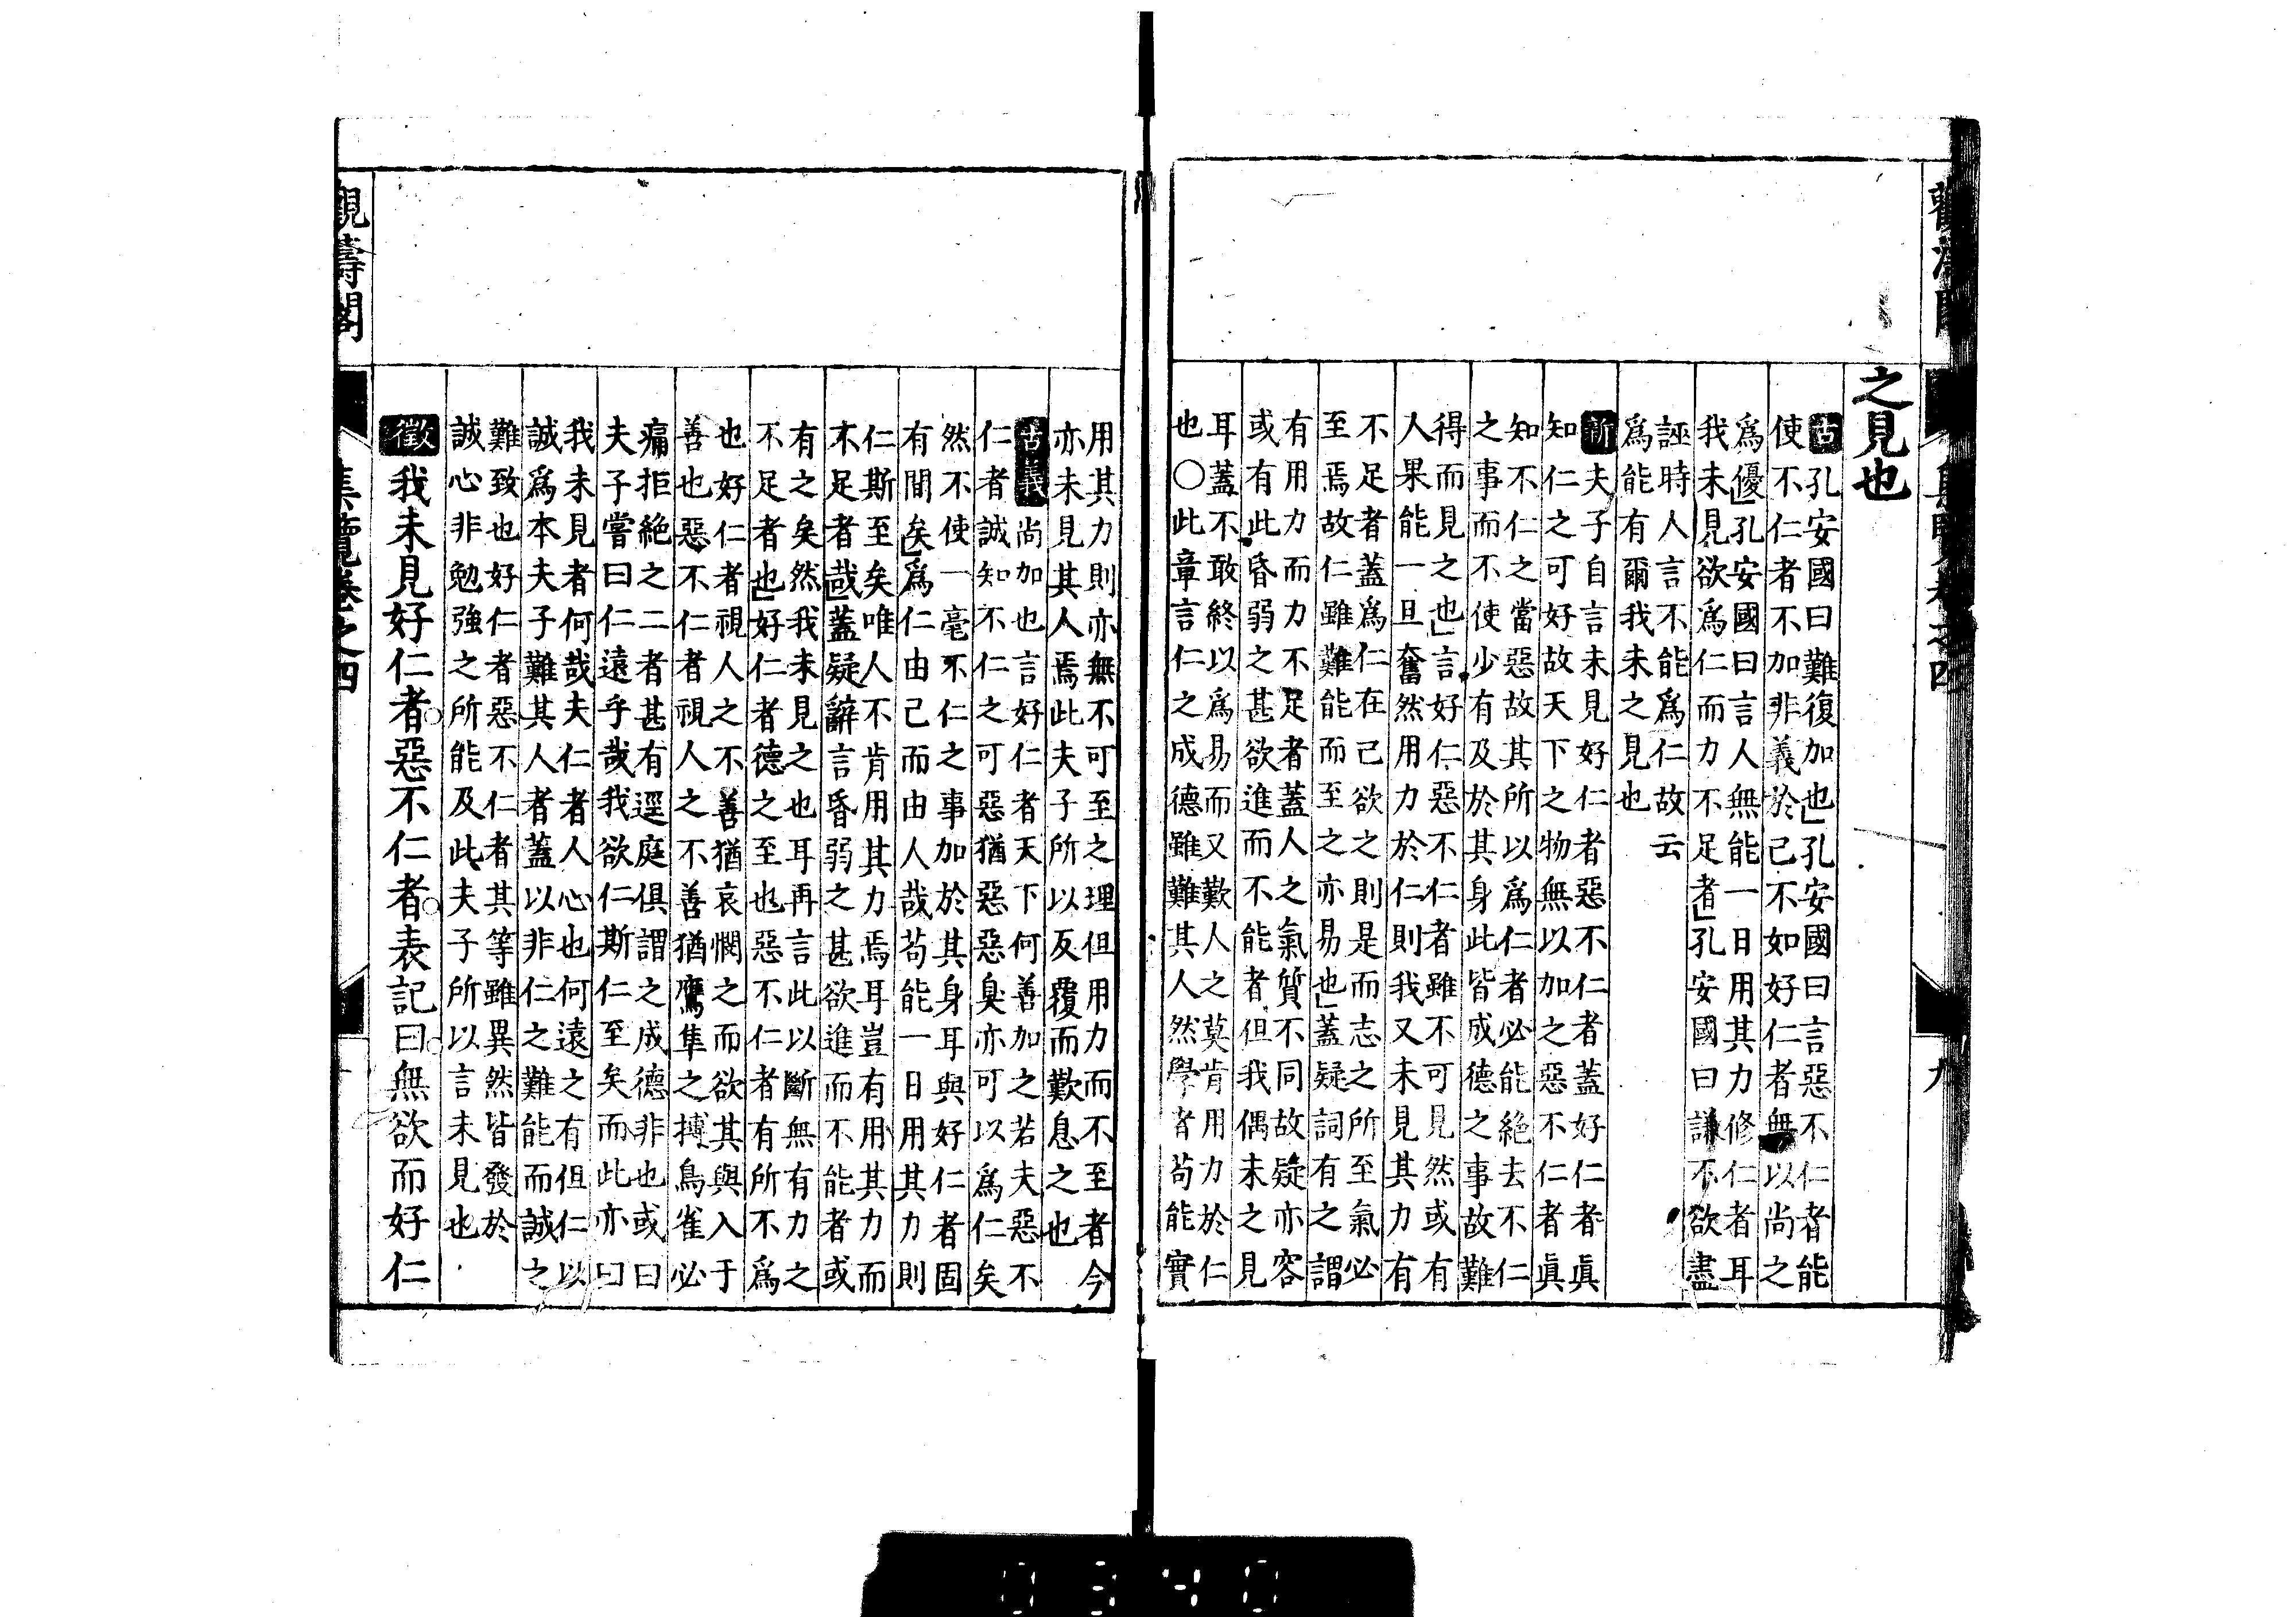 之見也
古孔安國曰難復加也孔安國曰言惡不仁者能
使不仁者不加非義於己不如好仁者無以尚之
爲優孔安國曰言人無能一日用其力修仁者耳
我未見欲爲仁而力不足者孔安國曰謙不欲盡
誣時人言不能爲仁故云
爲能有爾我未之見也
新夫子自言未見好仁者惡不仁者蓋好仁者眞
知仁之可好故天下之物無以加之惡不仁者眞
知不仁之當惡故其所以爲仁者必能絶去不仁
之事而不使少有及於其身此皆成德之事故難
得而見之也言好仁惡不仁者雖不可見然或有
人果能一旦奮然用力於仁則我又未見其力有
不足者蓋爲仁在己欲之則是而志之所至氣必
至焉故仁雖難能而至之亦易也蓋疑詞有之謂
有用力而力不足者蓋人之氣質不同故疑亦容
或有此昏弱之甚欲進而不能者但我偶未之見
耳蓋不敢終以爲易而又歎人之莫肯用力於仁
也○此章言仁之成德雖難其人然學者苟能實
用其力則亦無不可至之理但用力而不至者今
亦未見其人焉此夫子所以反覆而歎息之也
古義尚加也言好仁者天下何善加之若夫惡不
仁者誠知不仁之可惡猶惡惡臭亦可以爲仁矣
然不使一毫不仁之事加於其身耳與好仁者固
有間矣爲仁由己而由人哉苟能一日用其力則
仁斯至矣唯人不肯用其力焉耳豈有用其力而
不足者哉蓋疑辭言昏弱之甚欲進而不能者或
有之矣然我未見之也耳再言此以斷無有力之
不足者也好仁者德之至也惡不仁者有所不爲
也好仁者視人之不善猶哀憫之而欲其與入于
善也惡不仁者視人之不善猶鷹隼之搏鳥雀必
痛拒絶之二者甚有逕庭俱謂之成德非也或曰
夫子嘗曰仁遠乎哉我欲仁斯仁至矣而此亦曰
我未見者何哉夫仁者人心也何遠之有但仁以
誠爲本夫子難其人者蓋以非仁之難能而誠之
難致也好仁者惡不仁者其等雖異然皆發於
誠心非勉強之所能及此夫子所以言未見也
徵我未見好仁者惡不仁者表記曰無欲而好仁
集覽卷之四